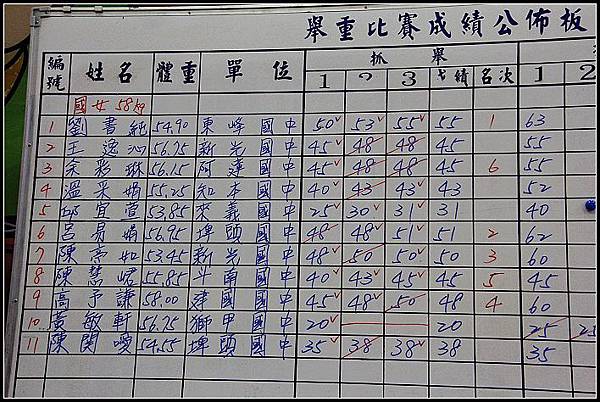 舉重比賽成績公佈板
編號 姓名 體重 單位 抓舉
1 2 3 成績 名次 1 2
國女 58kg
1 劉書純 54.90 東峰國中 50 53 55 55 1 63
2 王逸 56.75 新光國中 45 48 48 45 55
3 余彩琳 56.15 阿蓮國中 45 48 48 45 6 55
4 溫采娟 55.25 知本國中 40 43 43 43 52
5 邱宜萱 53.85 來義國中 25 30 31 31 40
6 呂易娟 56.95 埤頭國中 48 48 51 51 2 62
7 陳 如 53.45 新光國中 48 50 50 50 3 60
8 陳慧珺 55.85 斗南國中 40 43 45 45 5 45
9 高予謙 58.00 國國中 45 48 50 48 4 60
10 黃敏軒 56.75 獅甲國中 20 20 25 25
11 陳閔 54.55 埤頭國中 35 38 38 38 35